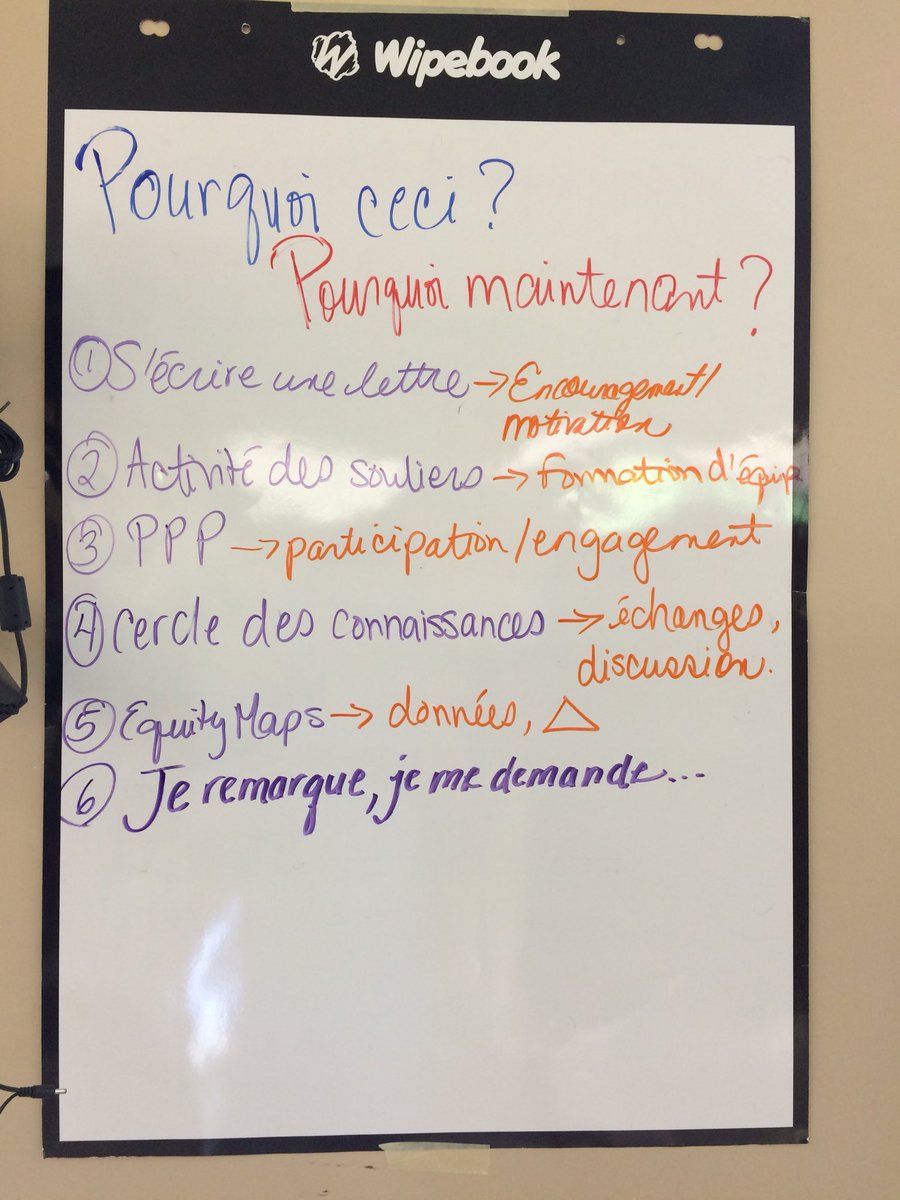 Wipebook
Pourquoi ceci ?
Pourquoi maintenant ?
① S'écrire une lettre → Encouragement/
motivation
② Activité des souliers → Formation d'équipe
③ PPP → participation/engagement
④ Cercle des connaissances → échanges,
discussion.
⑤ Equity Maps → données, △
⑥ Je remarque, je me demande...